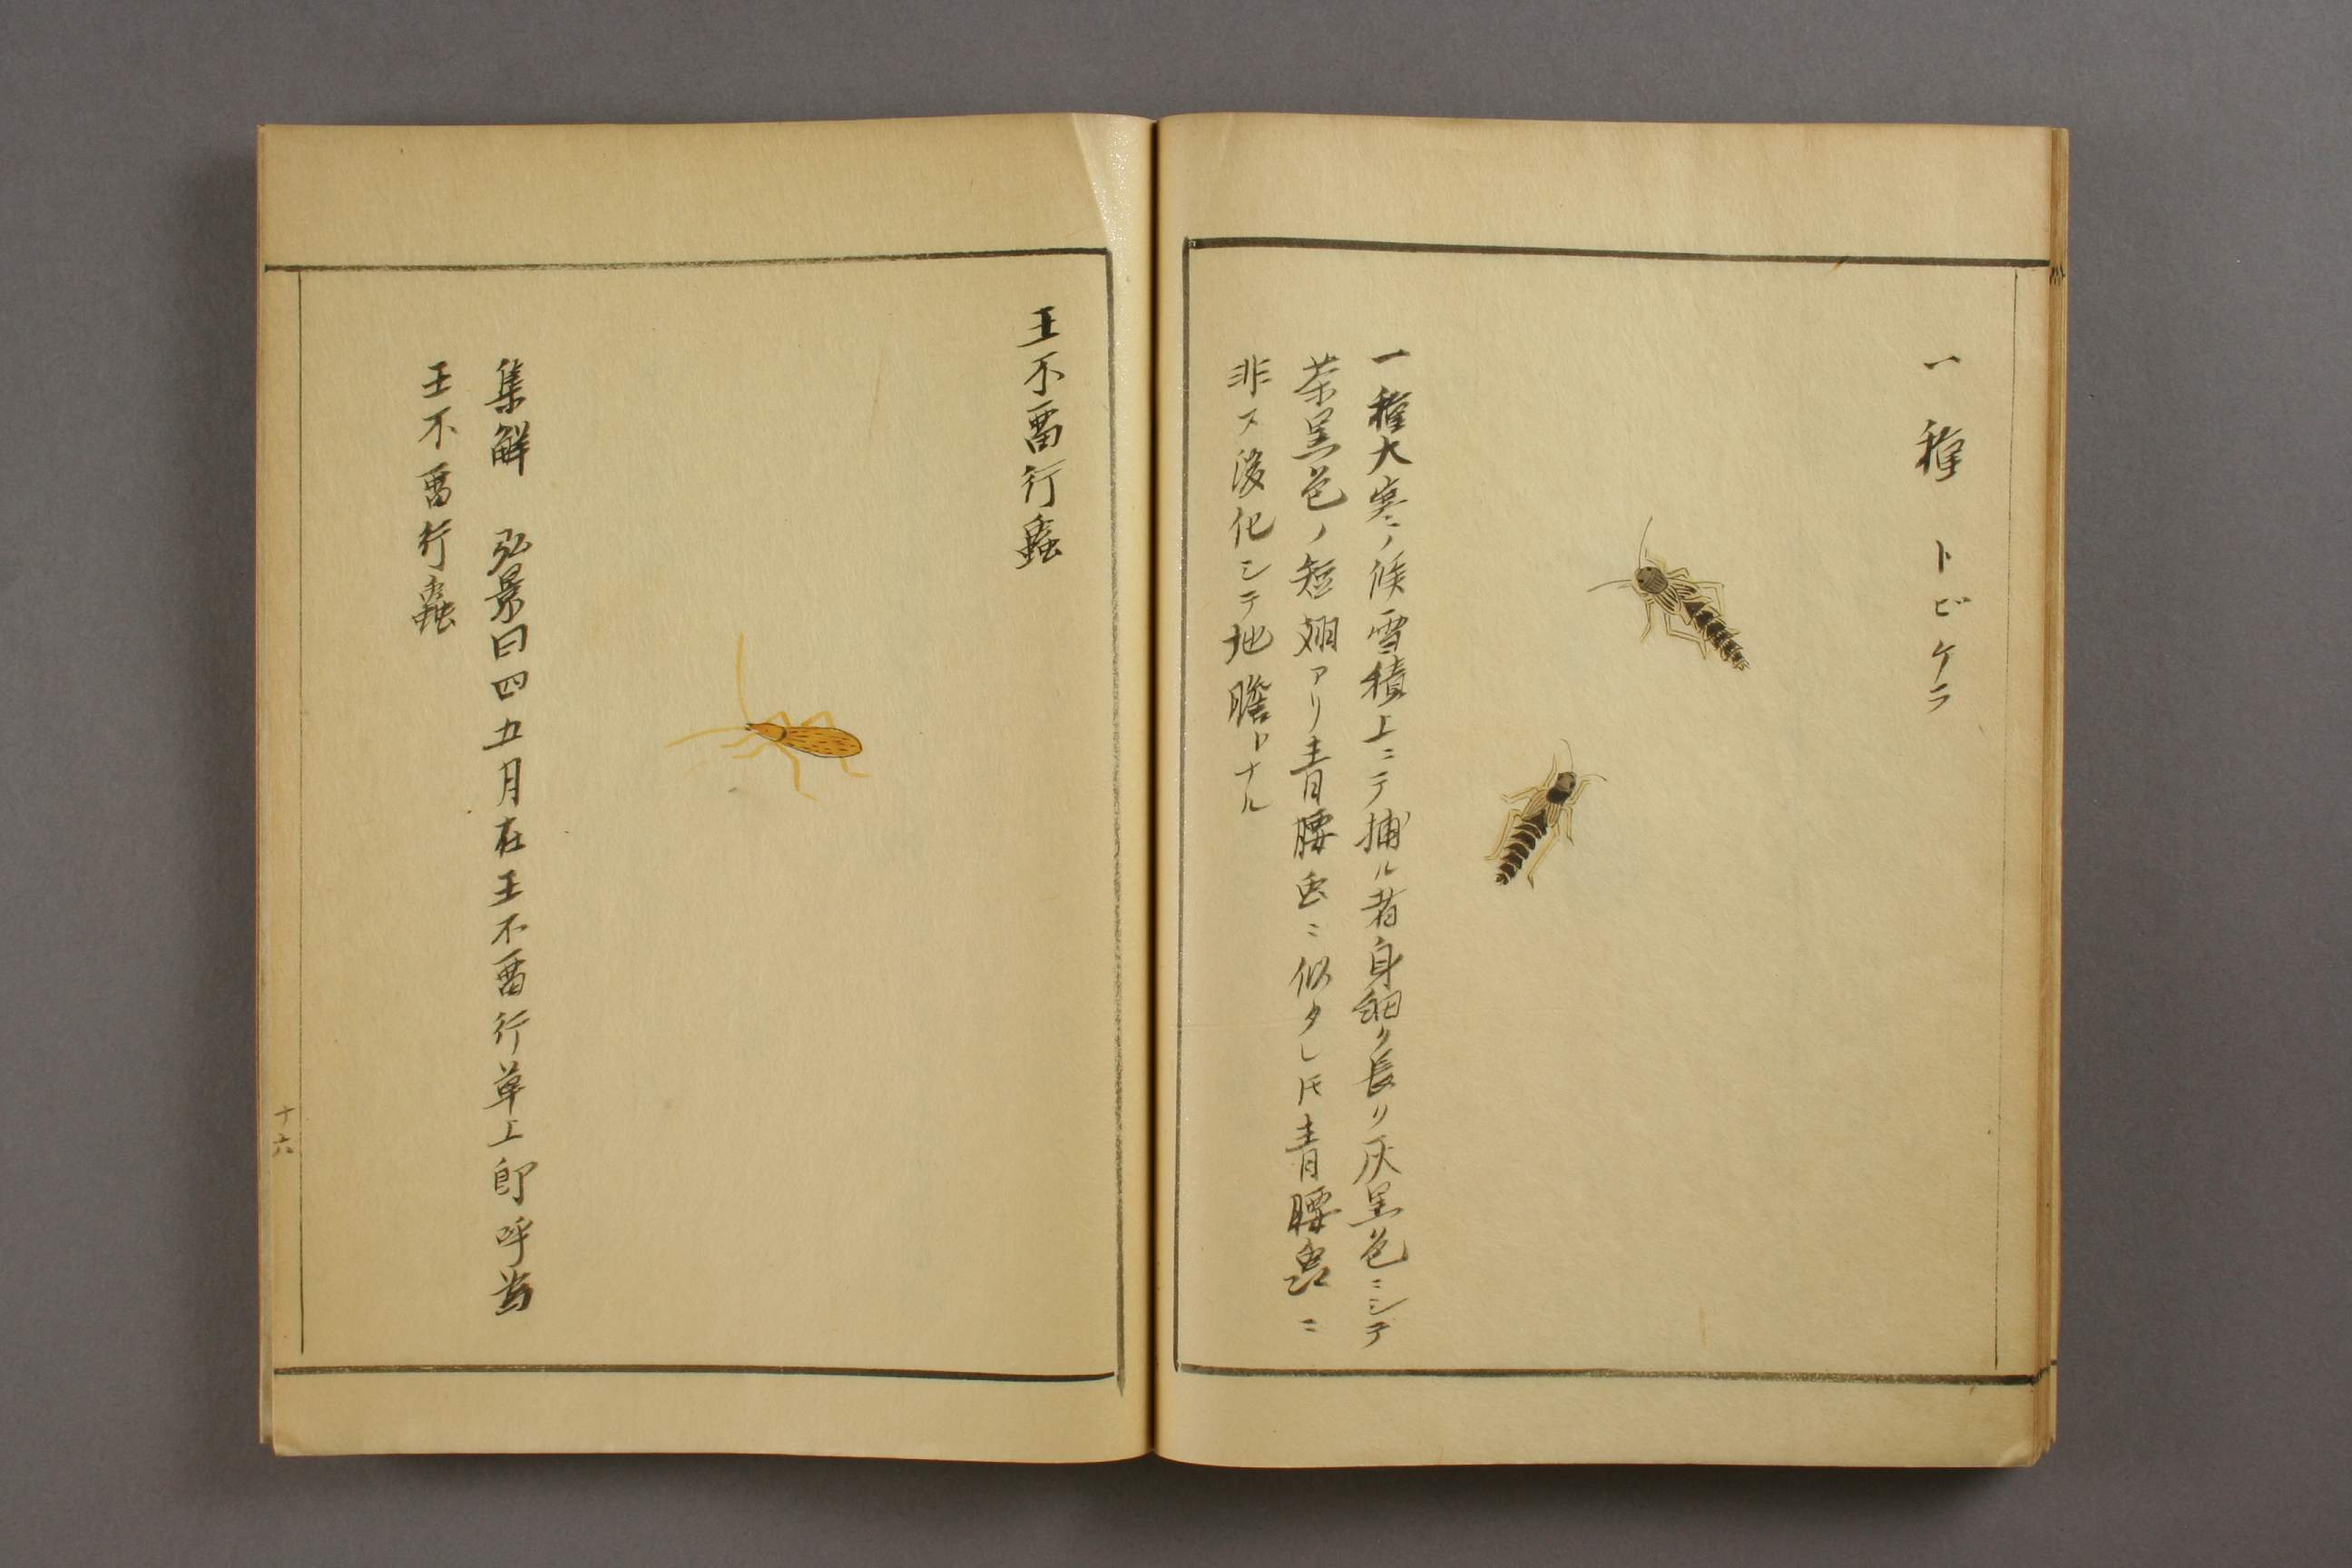 一種 トビケラ
一種大寒ノ候雪積上ニテ捕ル者身細ク長リ灰黒色ニシテ
茶黒色ノ短翅アリ青腰虫ニ似タレ𪜈青腰蟲ニ
非ス後化シテ地膽トナル
王不畱行蟲
集解 弘景曰四五月在王不畱行草上即呼為
王不畱行蟲
十六